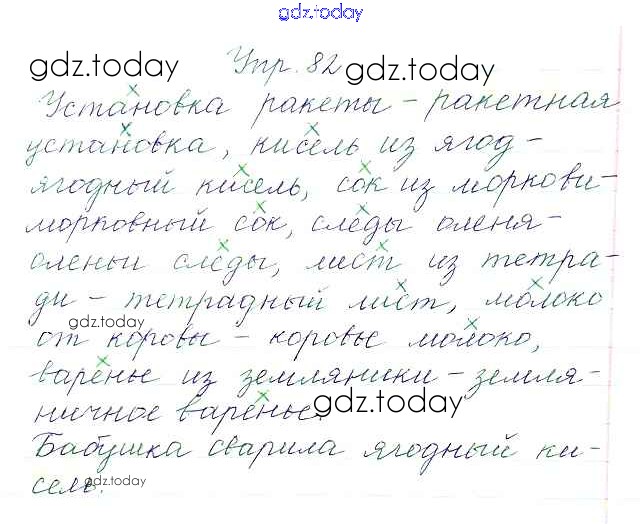 gdz.today
Упр. 82
gdz.today gdz.today
Установка ракеты - ракетная
установка, кисель из ягод -
ягодный кисель, сок из моркови -
морковный сок, следы оленя -
оленьи следы, лист из тетра-
ди - тетрадный лист, молоко
gdz.today
от коровы - коровье молоко,
варенье из земляники - земля-
ничное варенье.
gdz.today
Бабушка сварила ягодный ки-
сель.
gdz.today